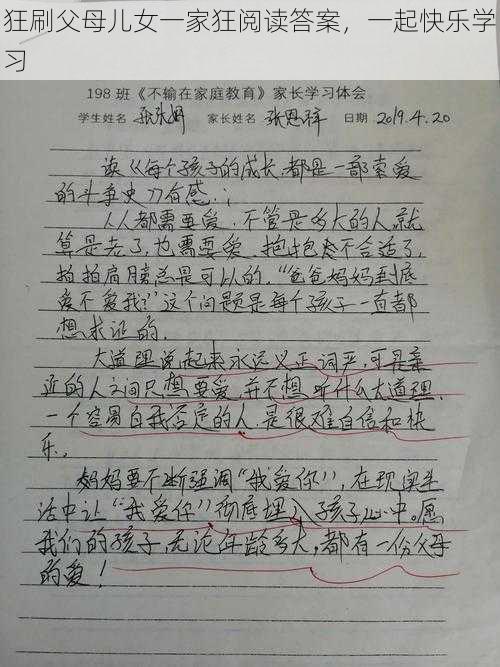 狂刷父母儿女一家狂阅读答案，一起快乐学
习
198 班《不输在家庭教育》家长学习体会
学生姓名 家长姓名 张恩祥 日期 2019.4.20
读《每个孩子的成长，都是一部索爱
的斗争史》有感：
人人都需要爱，不管是多大的人，就
算是老了，也需要爱，抱抱终不合适了，
拍拍肩膀总是可以的，“爸爸妈妈到底
爱不爱我？”这个问题是每个孩子一直都
想求证的．
大道理说起来永远义正词严，可是亲
近的人之间只想要爱，并不想听什么大道理，
一个容易自我否定的人，是很难自信和快
乐．
妈妈要不断强调“我爱你”，在现实生
活中让“我爱你”彻底埋入孩子心中。愿
我们的孩子，无论年龄多大，都有一份父母
的爱！